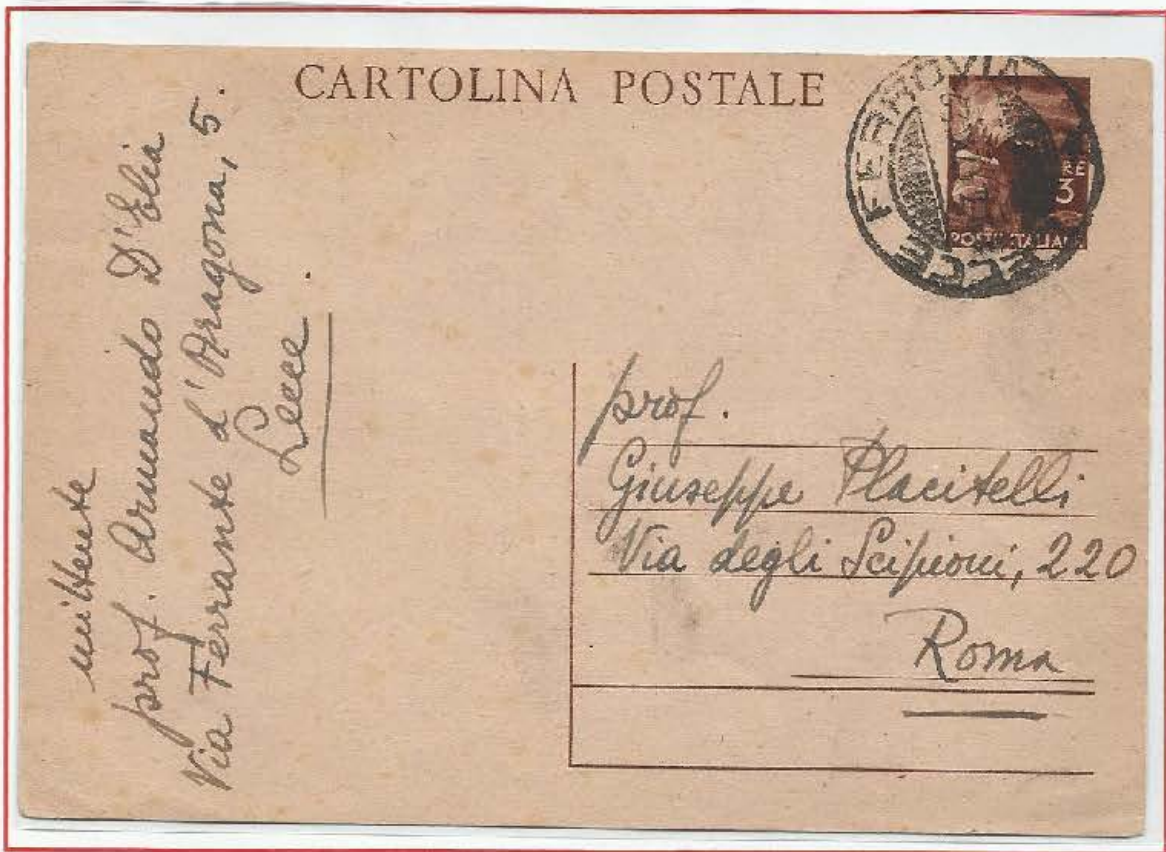 CARTOLINA POSTALE
LECCE FERROVIA
LIRE
3
POSTE ITALIANE
mittente
prof. Armando D'Elia
Via Ferrante d'Aragona, 5.
Lecce.
prof.
Giuseppe Placitelli
Via degli Scipioni, 220
Roma